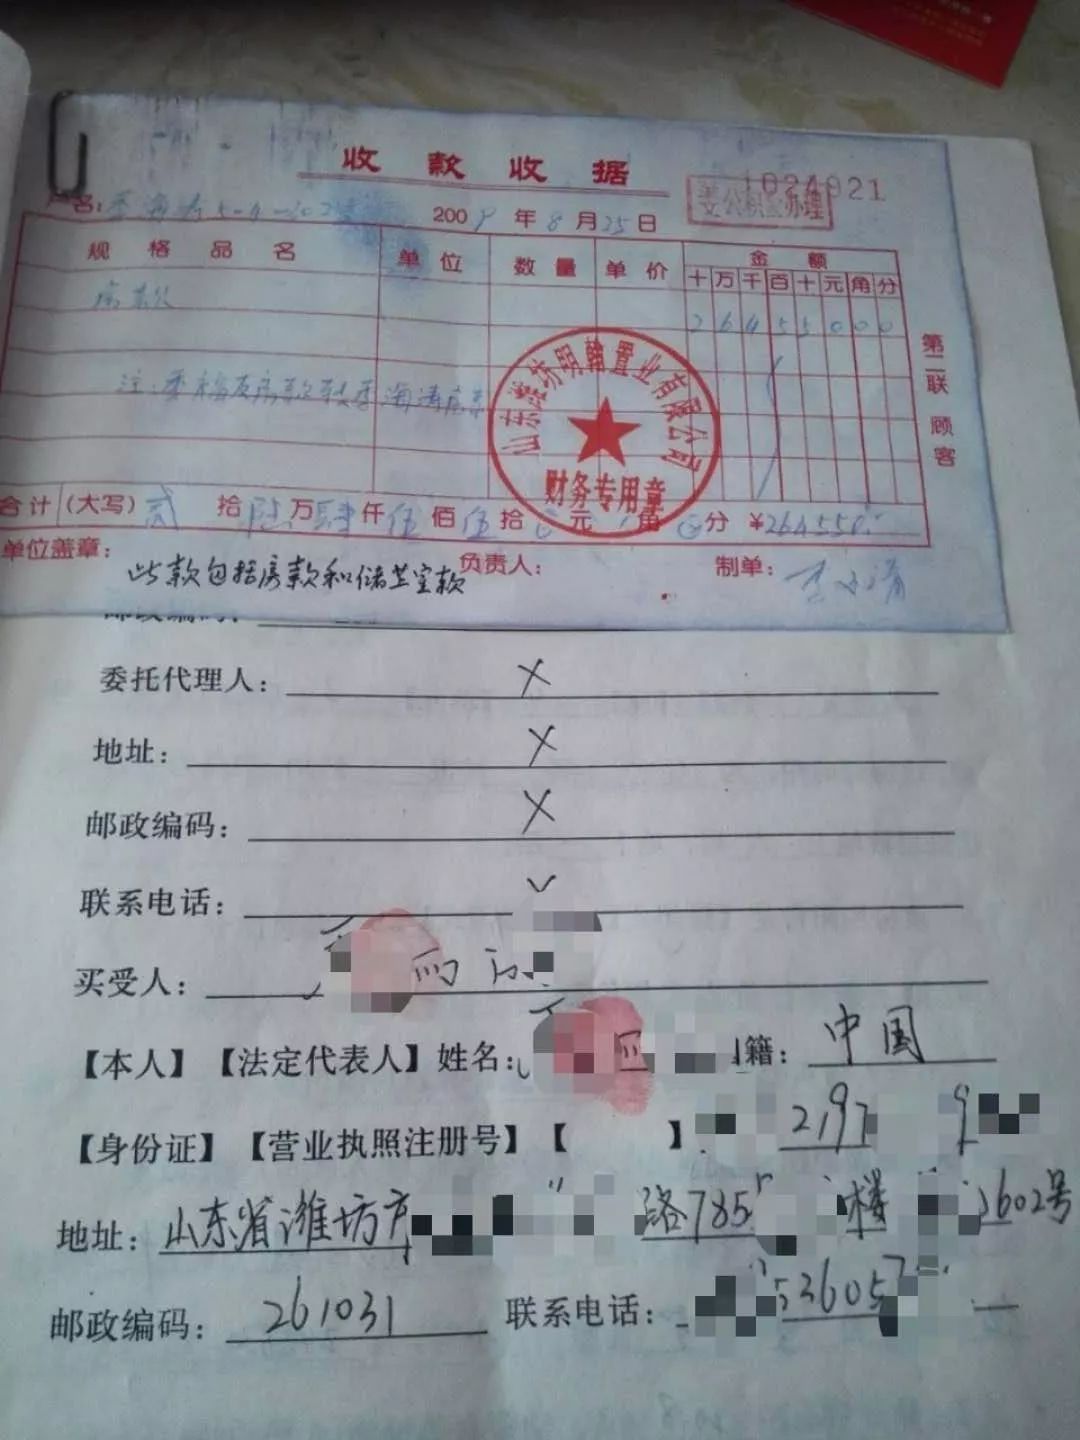 收款收据
1024921
委公积金办理
户名: 5-4-102 2009年8月25日
规格品名 单位 数量 单价 金额
十万千百十元角分
房款 26455000
第二联 顾客
注: 房款 海涛房款
山东潍坊明翰置业有限公司
财务专用章
合计(大写)贰拾陆万肆仟伍佰伍拾 元 角 分 ¥264550
单位盖章: 负责人: 制单:
此款包括房款和储芷室款
邮政编码:
委托代理人: X
地址: X
邮政编码: X
联系电话:
买受人:
【本人】【法定代表人】姓名: 籍: 中国
【身份证】【营业执照注册号】【 】 2197 9
地址: 山东省潍坊市 路785 楼 602号
邮政编码: 261031 联系电话: 53605